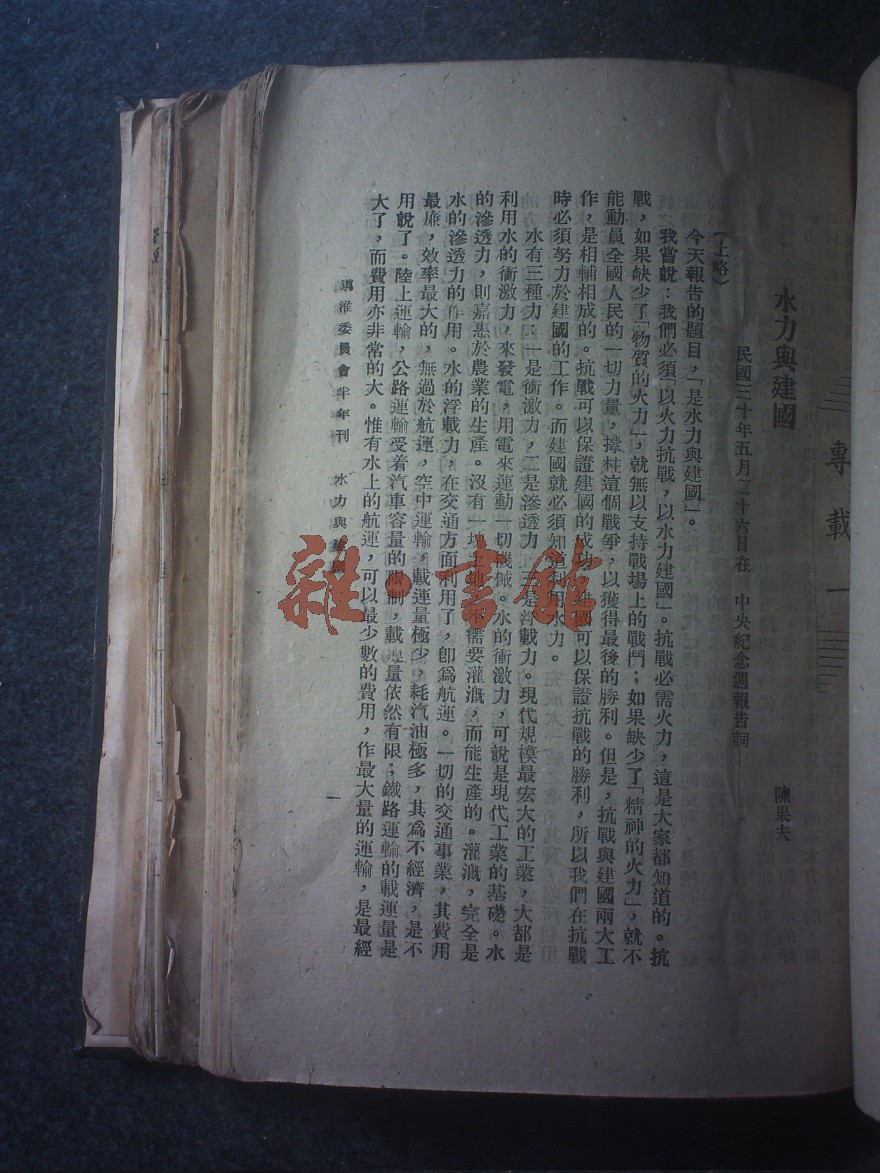 專載一
水力與建國
陳果夫
民國三十年五月二十六日在 中央紀念週報告詞
(上略)
今天報告的題目,「是水力與建國」。
我嘗說:我們必須「以火力抗戰,以水力建國」。抗戰必需火力,這是大家都知道的。抗
戰,如果缺少了「物質的火力」,就無以支持戰場上的戰鬥;如果缺少了「精神的火力」,就不
能動員全國人民的一切力量,撐柱這個戰爭,以獲得最後的勝利。但是,抗戰與建國兩大工
作,是相輔相成的。抗戰可以保證建國的成功,建國可以保證抗戰的勝利,所以我們在抗戰
時必須努力於建國的工作。而建國就必須知道利用水力。
水有三種力:一是衝激力,二是滲透力,三是浮載力。現代規模最宏大的工業,大都是
利用水的衝激力,來發電,用電來運動一切機械。水的衝激力,可說是現代工業的基礎。水
的滲透力,則嘉惠於農業的生產。沒有一塊土地不需要灌溉,而能生產的。灌溉,完全是
水的滲透力的作用。水的浮載力,在交通方面利用了,卽爲航運。一切的交通事業,其費用
最廉,效率最大的,無過於航運,空中運輸,載運量極少,耗汽油極多,其爲不經濟,是不
用說了。陸上運輸,公路運輸受着汽車容量的限制,載運量依然有限;鐵路運輸的載運量是
大了,而費用亦非常的大。惟有水上的航運,可以最少數的費用,作最大量的運輸,是最經
導淮委員會半年刊 水力與建國
一
雜·書館